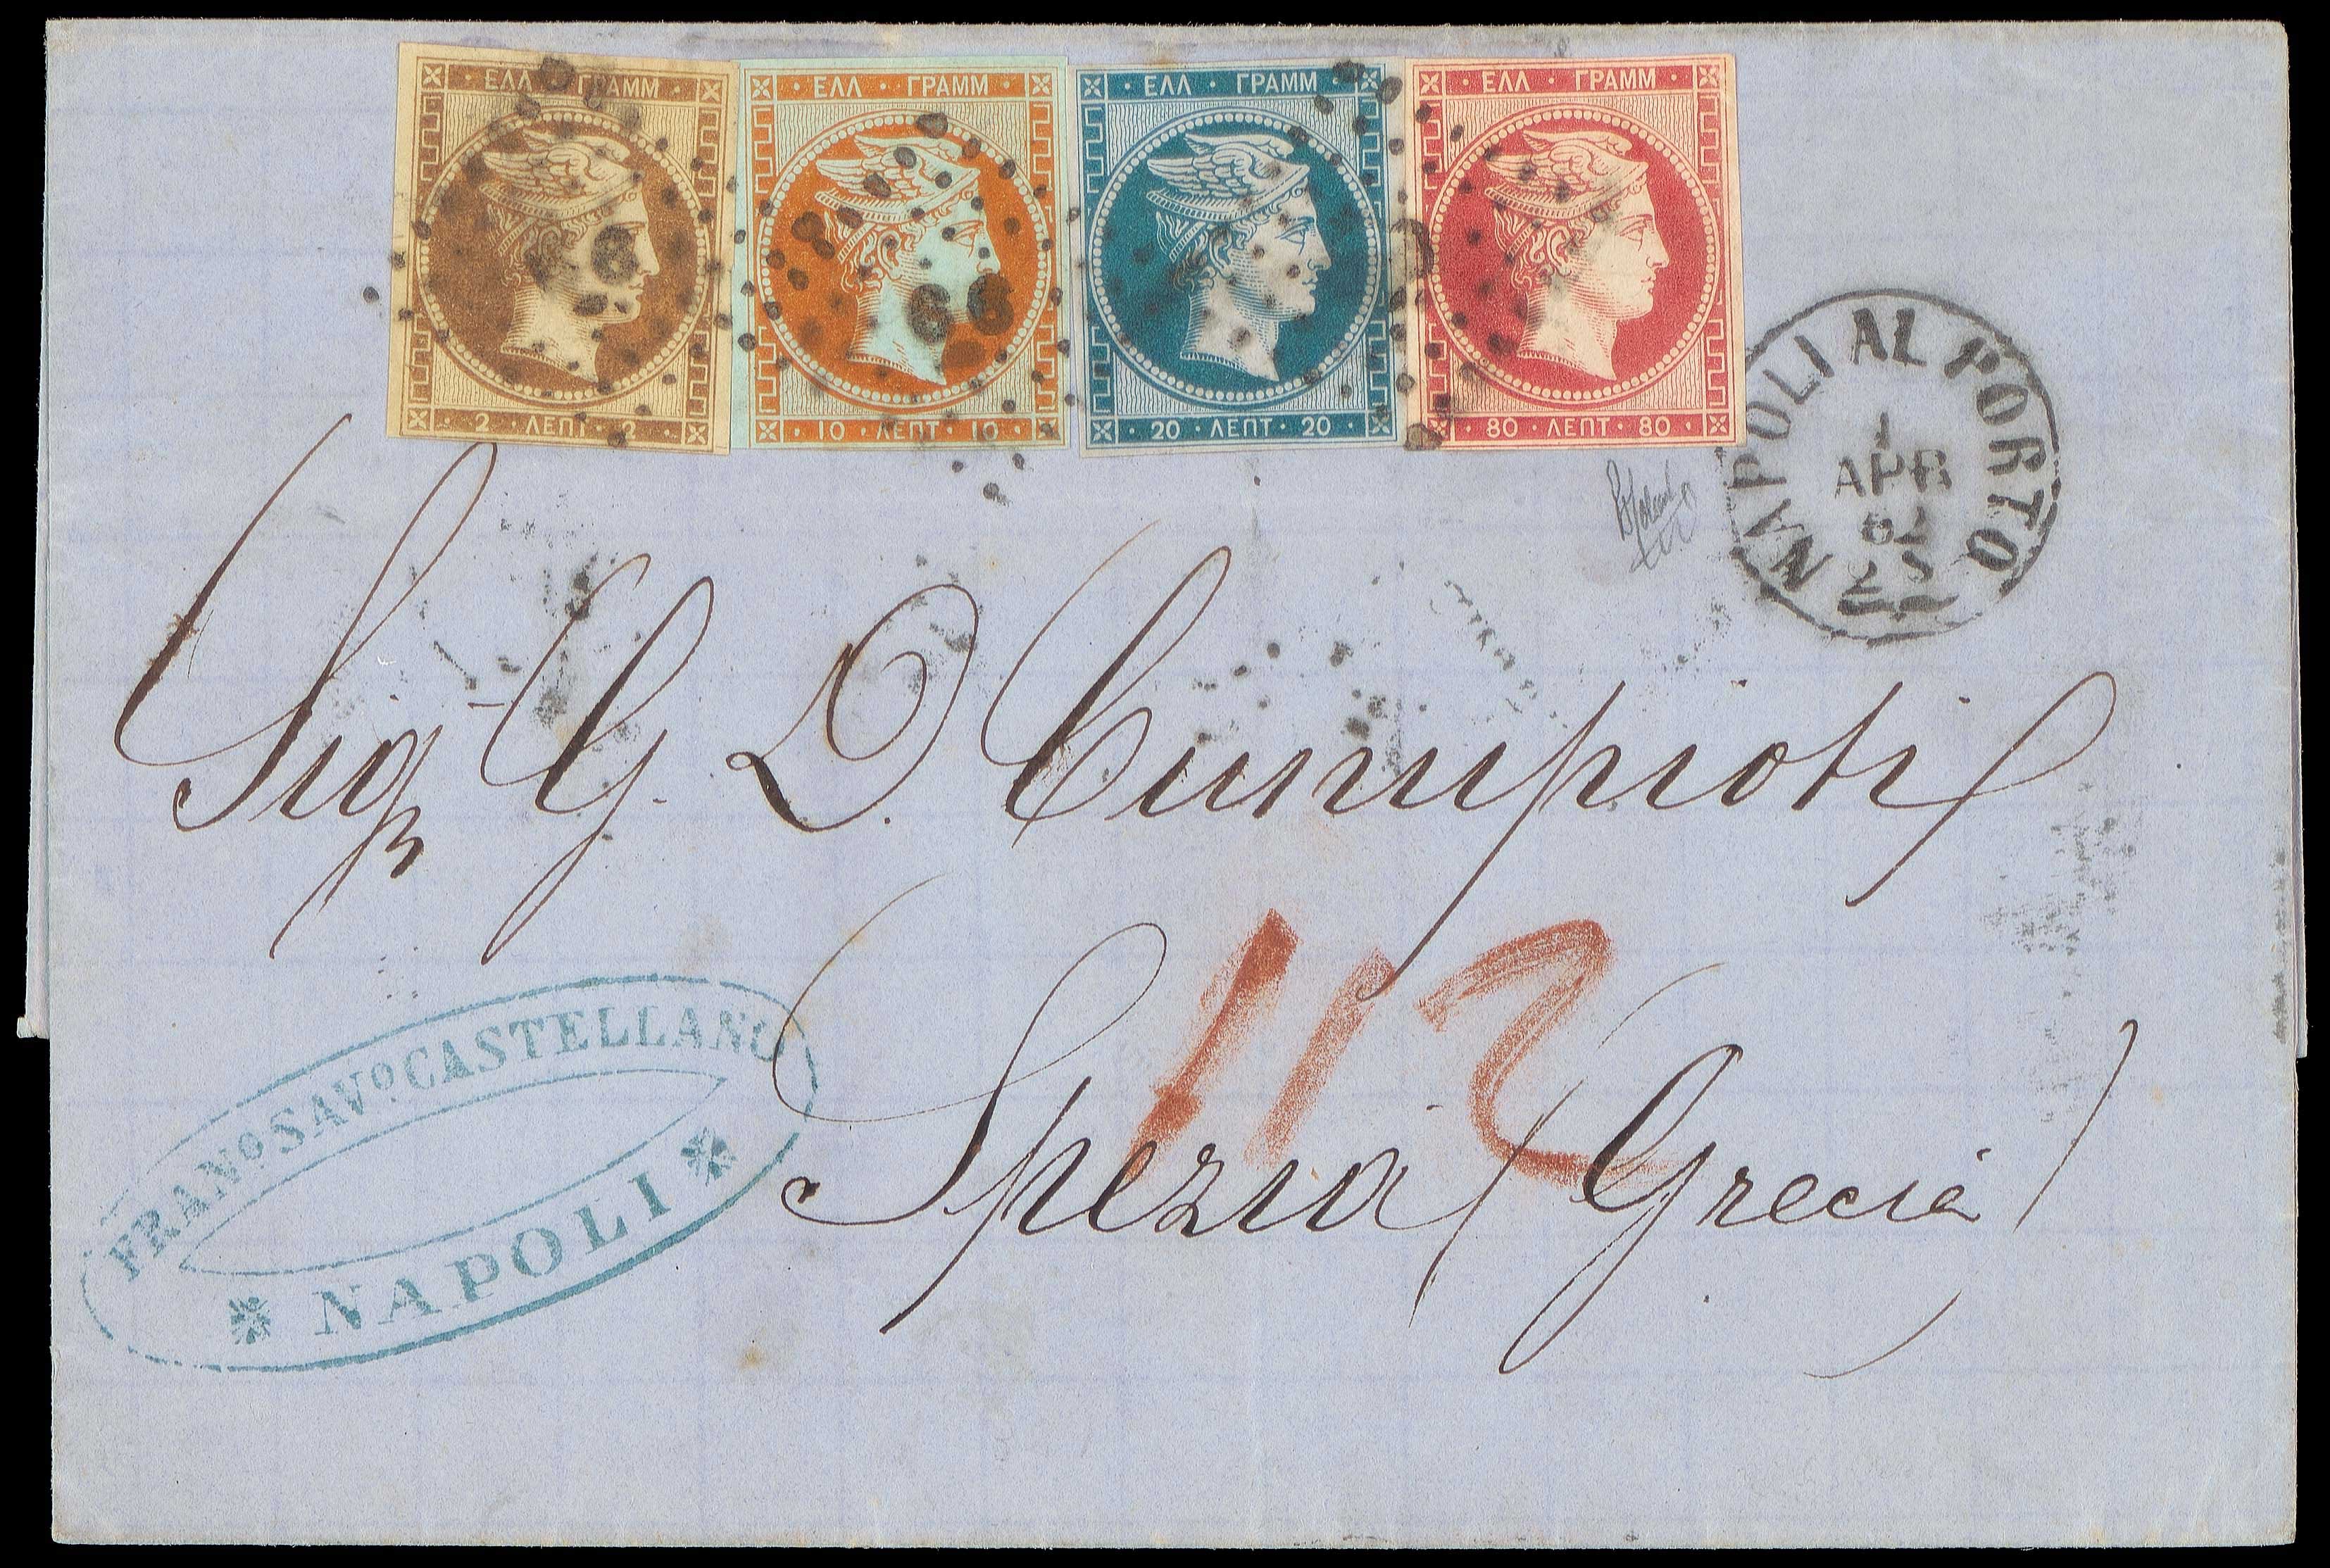 ΕΛΛ · ΓΡΑΜΜ ·
· 2 · ΛΕΠΤ · 2 ·
· ΕΛΛ · ΓΡΑΜΜ ·
· 10 · ΛΕΠΤ · 10 ·
· ΕΛΛ · ΓΡΑΜΜ ·
· 20 · ΛΕΠΤ · 20 ·
· ΕΛΛ · ΓΡΑΜΜ ·
· 80 · ΛΕΠΤ · 80 ·
66
NAPOLI AL PORTO
1
APR
62
2S
Sigr G. D. Cumpioti
112
Spezia (Grecia)
FRANº SAVº CASTELLANO
* NAPOLI *